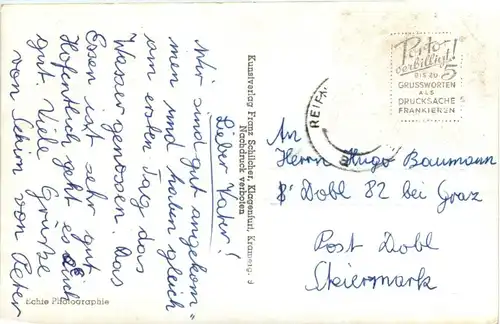 Lieber Vater!
Wir sind gut angekom"
men und haben gleich
am ersten Tag das
Wasser genossen. Das
Essen ist sehr gut
Hofentlich geht es Euch
gut. Viele Grüße
von Peter
Echte Photographie
Kunstverlag Franz Schilcher, Klagenfurt, Kramerg. 9
Nachdruck verboten
Porto-
verbilligt!
BIS ZU 5
GRUSSWORTEN
ALS
DRUCKSACHE
FRANKIEREN
REIF
An
Herrn Hugo Baumann
Dobl 82 bei Graz
Post Dobl
Steiermark